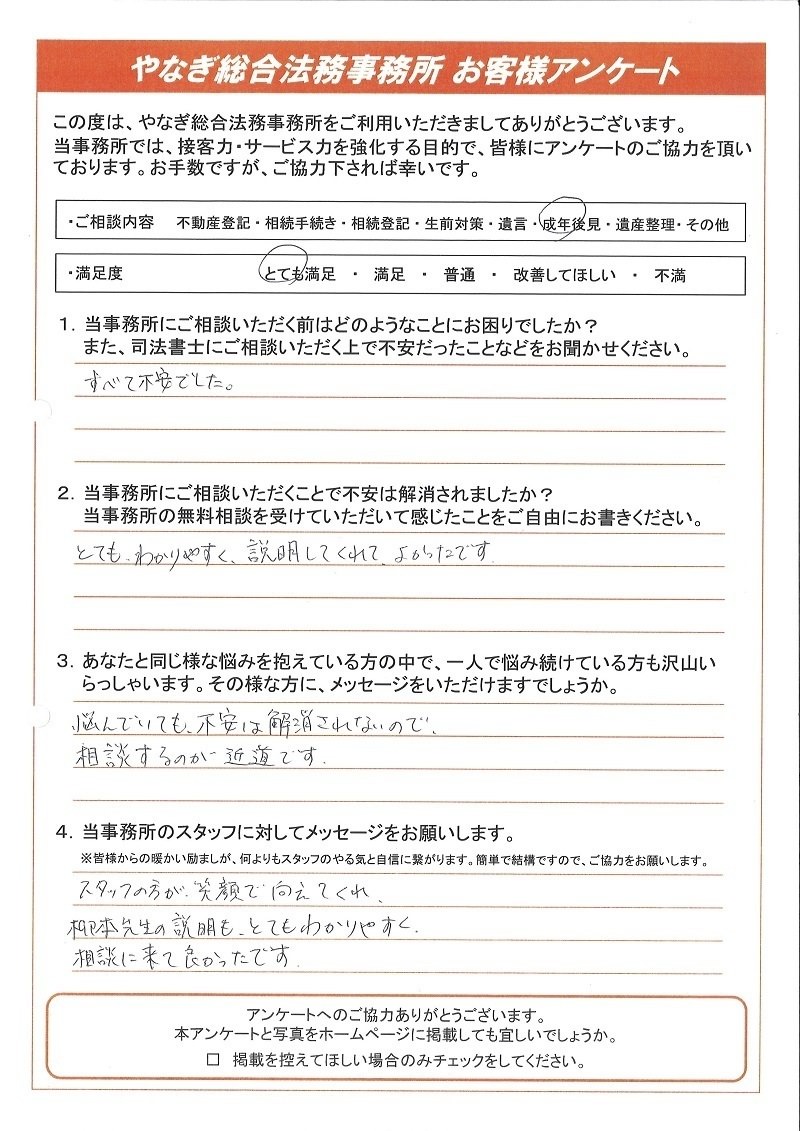 やなぎ総合法務事務所 お客様アンケート
この度は、やなぎ総合法務事務所をご利用いただきましてありがとうございます。
当事務所では、接客力・サービス力を強化する目的で、皆様にアンケートのご協力を頂い
ております。お手数ですが、ご協力下されば幸いです。
・ご相談内容 不動産登記・相続手続き・相続登記・生前対策・遺言・成年後見・遺産整理・その他
・満足度 とても満足 ・ 満足 ・ 普通 ・ 改善してほしい ・ 不満
1. 当事務所にご相談いただく前はどのようなことにお困りでしたか？
また、司法書士にご相談いただく上で不安だったことなどをお聞かせください。
すべて不安でした。
2. 当事務所にご相談いただくことで不安は解消されましたか？
当事務所の無料相談を受けていただいて感じたことをご自由にお書きください。
とても、わかりやすく、説明してくれて、よかったです。
3. あなたと同じ様な悩みを抱えている方の中で、一人で悩み続けている方も沢山い
らっしゃいます。その様な方に、メッセージをいただけますでしょうか。
悩んでいても、不安は解消されないので、
相談するのが近道です。
4. 当事務所のスタッフに対してメッセージをお願いします。
※皆様からの暖かい励ましが、何よりもスタッフのやる気と自信に繋がります。簡単で結構ですので、ご協力をお願いします。
スタッフの方が、笑顔で向えてくれ、
柳本先生の説明も、とてもわかりやすく、
相談に来て良かったです。
アンケートへのご協力ありがとうございます。
本アンケートと写真をホームページに掲載しても宜しいでしょうか。
□ 掲載を控えてほしい場合のみチェックをしてください。